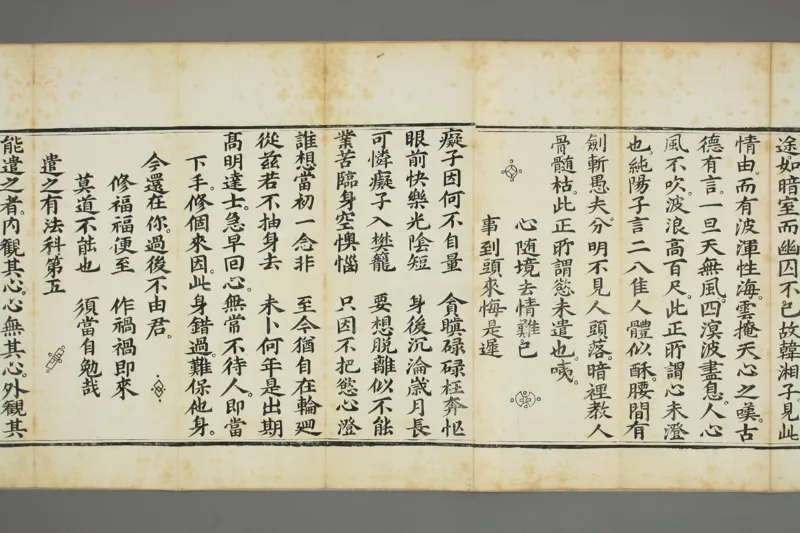 途如暗室而幽囚不已故韓湘子見此
情由。而有波渾性海。雲掩天心之嘆。古
德有言。一旦天無風。四溟波盡息。人心
風不吹。波浪高百尺。此正所謂心未澄
也純陽子言二八佳人體似酥。腰間有
劍斬愚夫分明不見人頭落。暗裡教人
骨髓枯。此正所謂慾未遣也。咦。
心隨境去情難已
事到頭來悔是遲
癡子因何不自量 貪瞋碌碌枉奔忙
眼前快樂光陰短 身後沉淪歲月長
可憐癡子入樊籠 要想脫離似不能
業苦臨身空懊惱 只因不把慾心澄
誰想當初一念非 至今猶自在輪廻
從茲若不抽身去 未卜何年是出期
高明達士。急早回心。無常不待人。即當
下手。修個來因。此身錯過。難保他身。
今還在你。過後不由君。
修福福便至 作禍禍即來
莫道不能也 須當自勉哉
遣之有法科第五
能遣之者。內觀其心。心無其心。外觀其